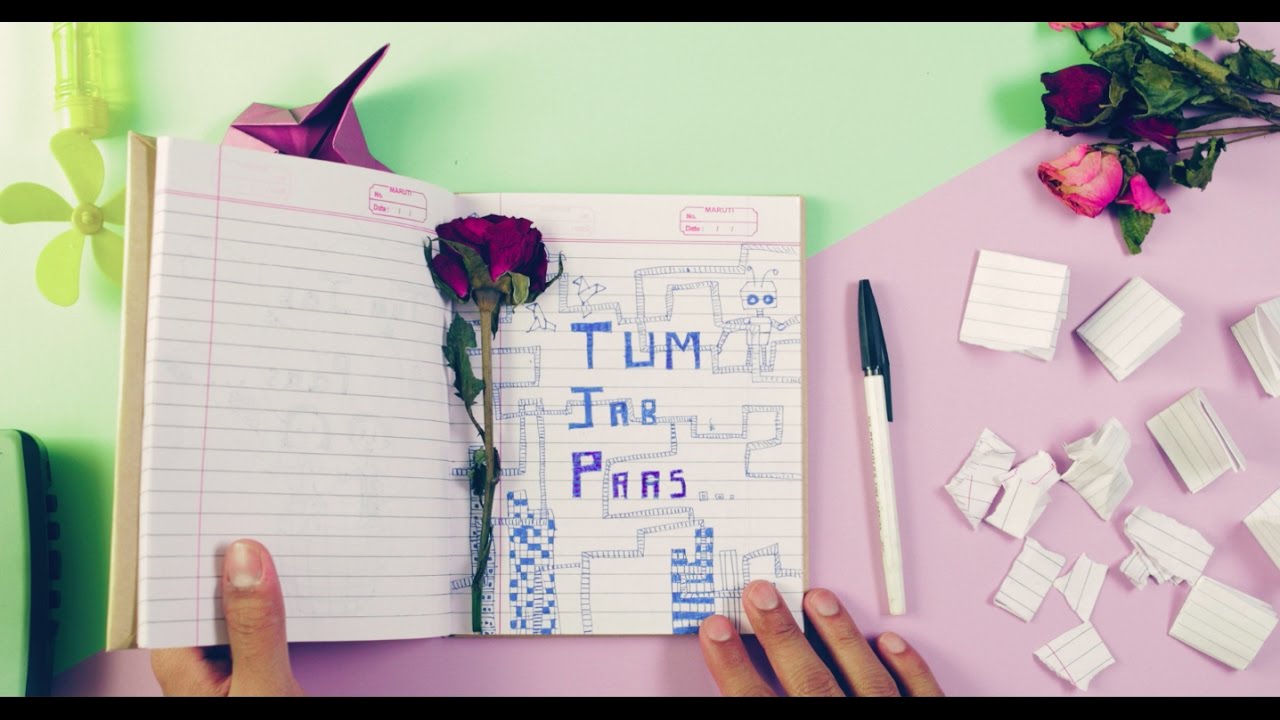 MARUTI
No.
Date: / /
MARUTI
No.
Date: / /
TUM
JAB
PAAS